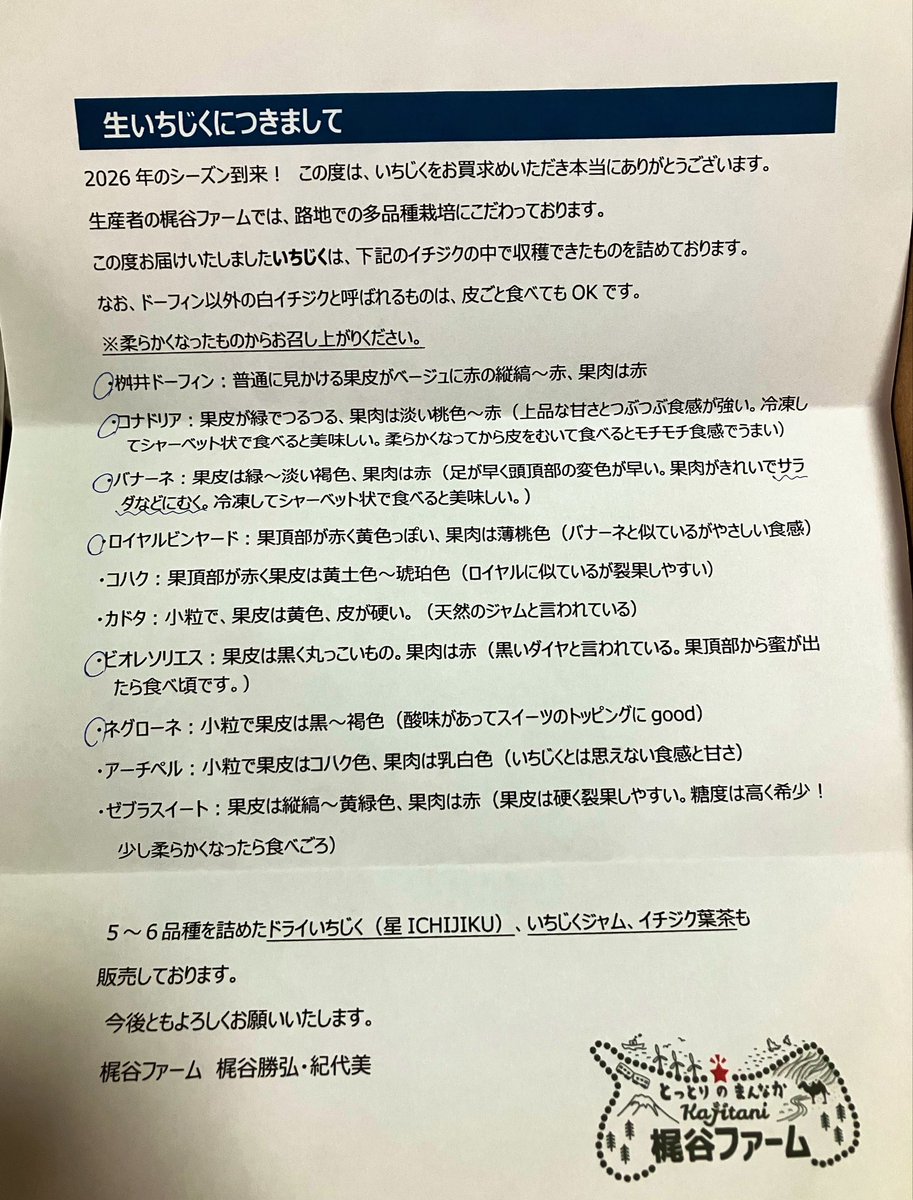 生いちじくにつきまして
2026 年のシーズン到来！ この度は、いちじくをお買求めいただき本当にありがとうございます。
生産者の梶谷ファームでは、路地での多品種栽培にこだわっております。
この度お届けいたしましたいちじくは、下記のイチジクの中で収穫できたものを詰めております。
なお、ドーフィン以外の白イチジクと呼ばれるものは、皮ごと食べても OK です。
※柔らかくなったものからお召し上がりください。
・桝井ドーフィン：普通に見かける果皮がベージュに赤の縦縞～赤、果肉は赤
・コナドリア：果皮が緑でつるつる、果肉は淡い桃色～赤（上品な甘さとつぶつぶ食感が強い。冷凍し
てシャーベット状で食べると美味しい。柔らかくなってから皮をむいて食べるとモチモチ食感でうまい）
・バナーネ：果皮は緑～淡い褐色、果肉は赤（足が早く頭頂部の変色が早い。果肉がきれいでサラ
ダなどにむく。冷凍してシャーベット状で食べると美味しい。）
・ロイヤルビンヤード：果頂部が赤く黄色っぽい、果肉は薄桃色（バナーネと似ているがやさしい食感）
・コハク：果頂部が赤く果皮は黄土色～琥珀色（ロイヤルに似ているが裂果しやすい）
・カドタ：小粒で、果皮は黄色、皮が硬い。（天然のジャムと言われている）
・ビオレソリエス：果皮は黒く丸っこいもの。果肉は赤（黒いダイヤと言われている。果頂部から蜜が出
たら食べ頃です。）
・ネグローネ：小粒で果皮は黒～褐色（酸味があってスイーツのトッピングに good）
・アーチペル：小粒で果皮はコハク色、果肉は乳白色（いちじくとは思えない食感と甘さ）
・ゼブラスイート：果皮は縦縞～黄緑色、果肉は赤（果皮は硬く裂果しやすい。糖度は高く希少！
少し柔らかくなったら食べごろ）
５～６品種を詰めたドライいちじく（星 ICHIJIKU）、いちじくジャム、イチジク葉茶も
販売しております。
今後ともよろしくお願いいたします。
梶谷ファーム 梶谷勝弘・紀代美
とっとりのまんなか
Kajitani
梶谷ファーム